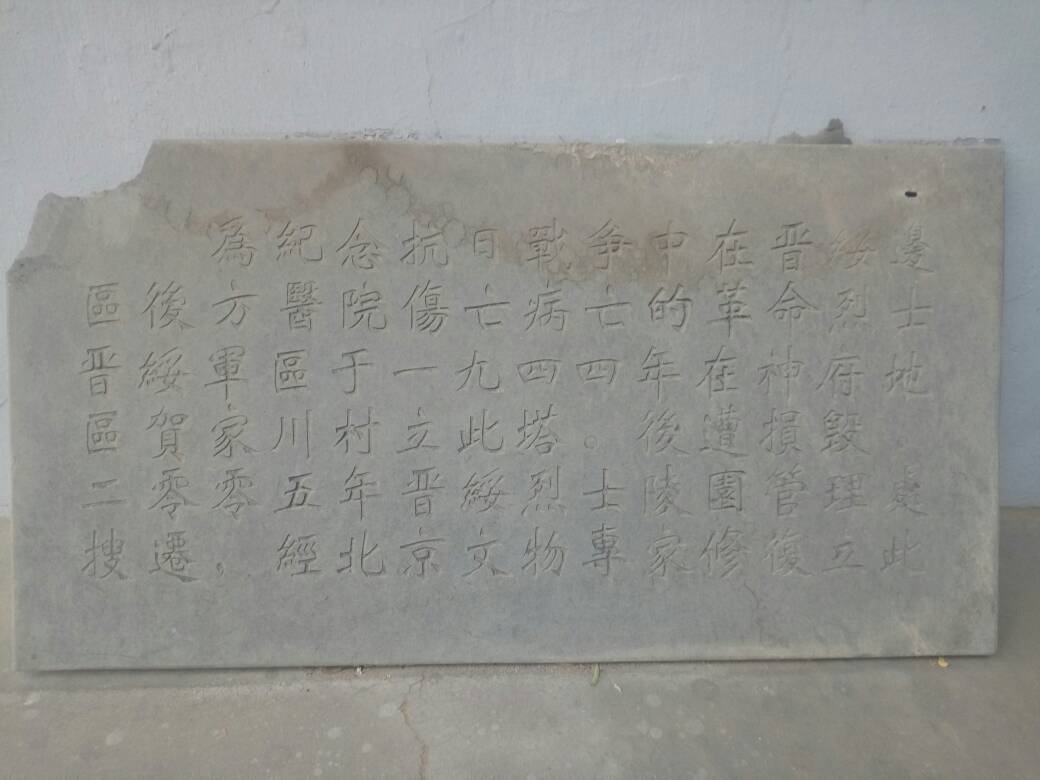 為紀念抗日戰爭中在晋綏邊
區後方醫院傷亡病亡的革命烈士
晋綏軍區于一九四四年在神府地
區賀家川村立此塔。後遭損毀.
二零零五年晋綏烈士陵園管理處
搜遷，經北京文物專家修復立此